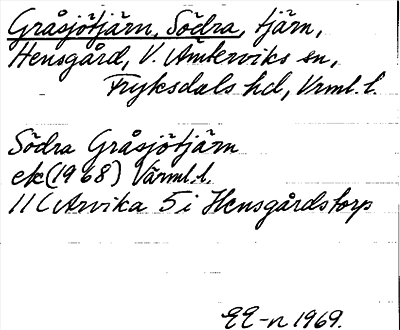 Gråsjötjärn, Södra, tjärn,
Hensgård, V. Ämterviks sn,
Fryksdals hd, Vrml. l.
Södra Gråsjötjärn
ek (1968) Värml. l.
11C Arvika 5 i Hensgårdstorp
EE-n 1969.